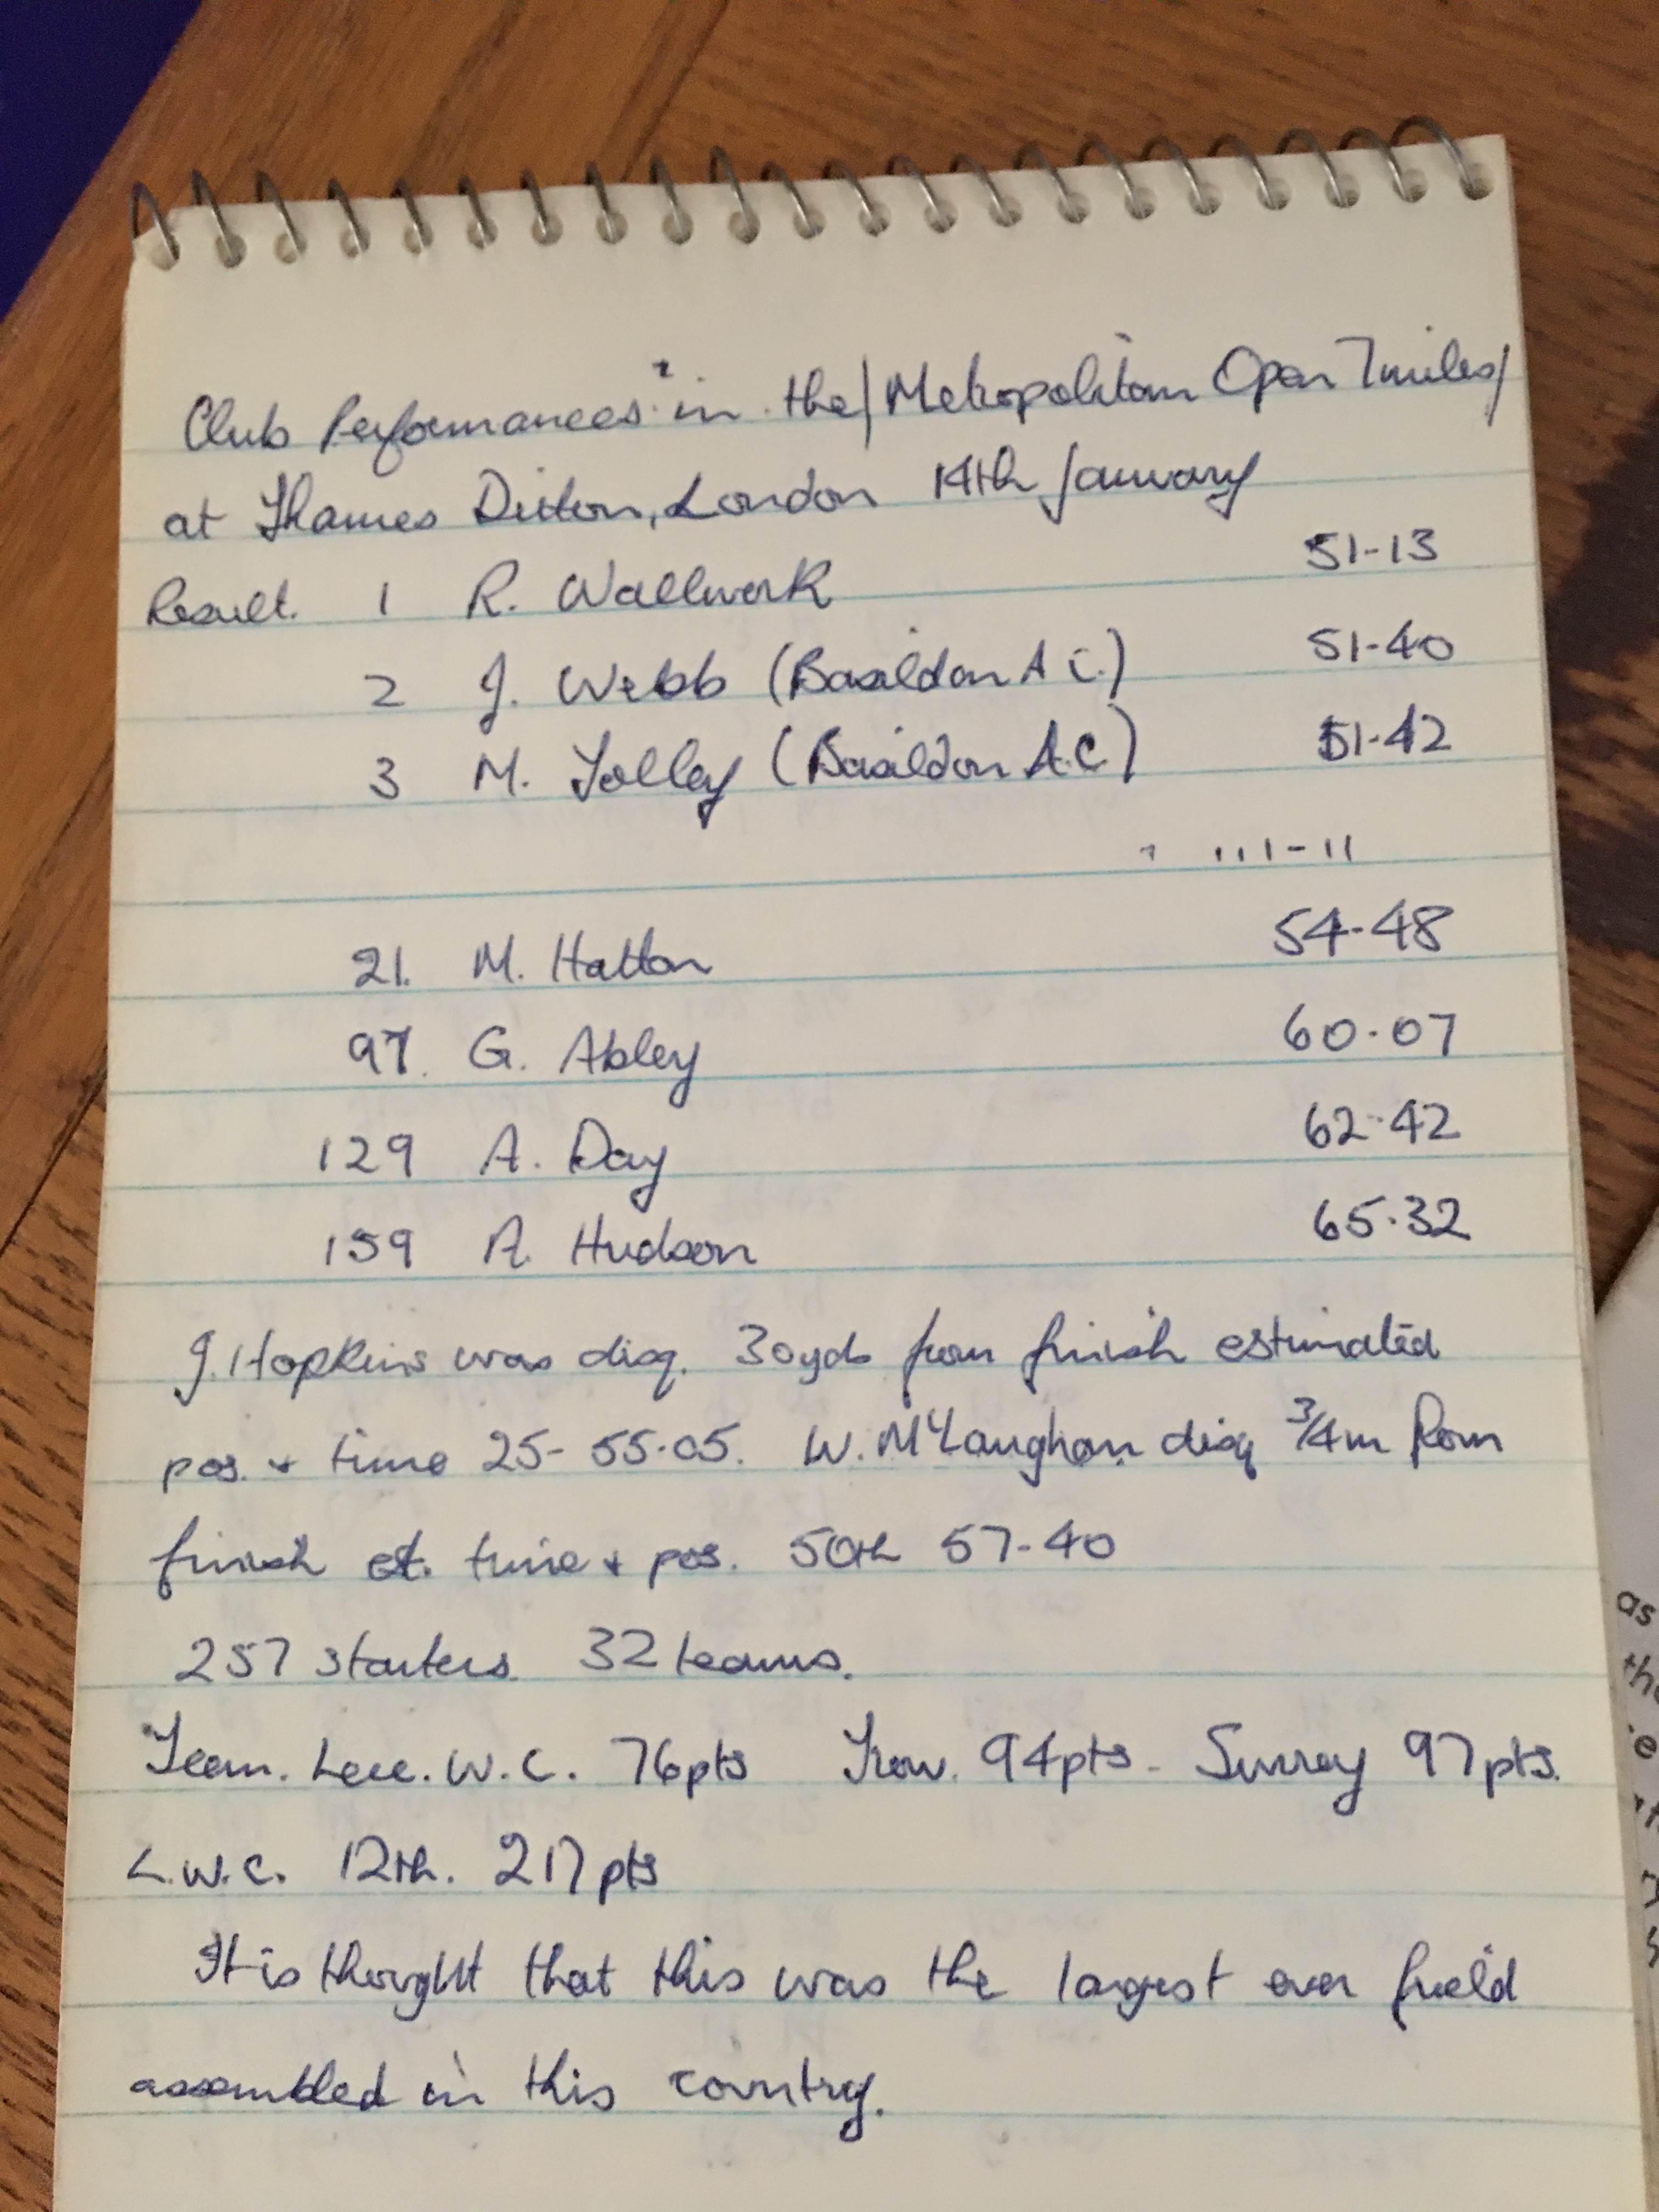 Club Performances in the/Metropolitan Open 7 miles/
at Thames Ditton, London 14th January
Result. 1 R. Wallwork 51-13
2 J. Webb (Basildon A C.) 51-40
3 M. Tolley (Basildon A.C.) 51-42
21. M. Hatton 54-48
97. G. Abley 60.07
129 A. Day 62.42
159 A. Hudson 65.32
J. Hopkins was disq. 30yds from finish estimated
pos. + time 25- 55.05. W. McLaughan disq 3/4m from
finish est. time + pos. 50th 57-40
257 starters. 32 teams.
Team. Leic. W.C. 76pts Trow. 94pts - Surrey 97pts.
L.W.C. 12th. 217pts
It is thought that this was the largest ever field
assembled in this country.